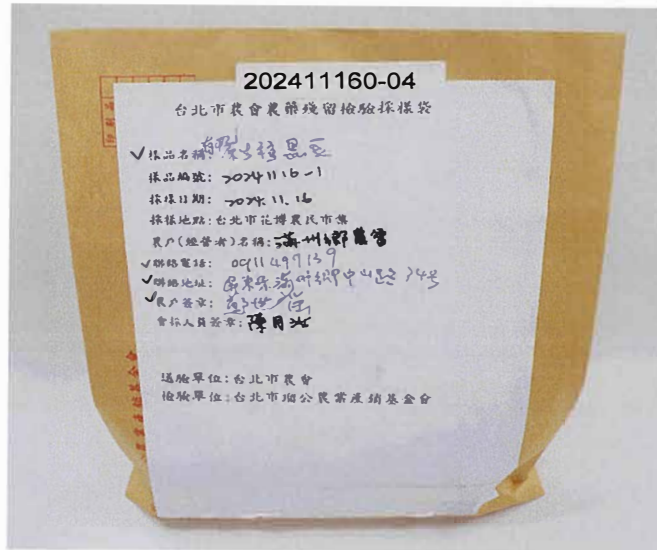 202411160-04
台北市農會農藥殘留檢驗採樣袋
樣品名稱:
黑豆
樣品編號: 20241116-1
採樣日期: 2024.11.16
採樣地點:台北市花博農民市集
農戶(經營者)名稱:滿州鄉農會
聯絡電話: 0911497139
聯絡地址: 屏東縣滿州鄉中山路34號
農戶簽章:
會採人員簽章:陳月
送驗單位:台北市農會
檢驗單位:台北市瑠公農業產銷基金會
印刷品
農業產銷基金會